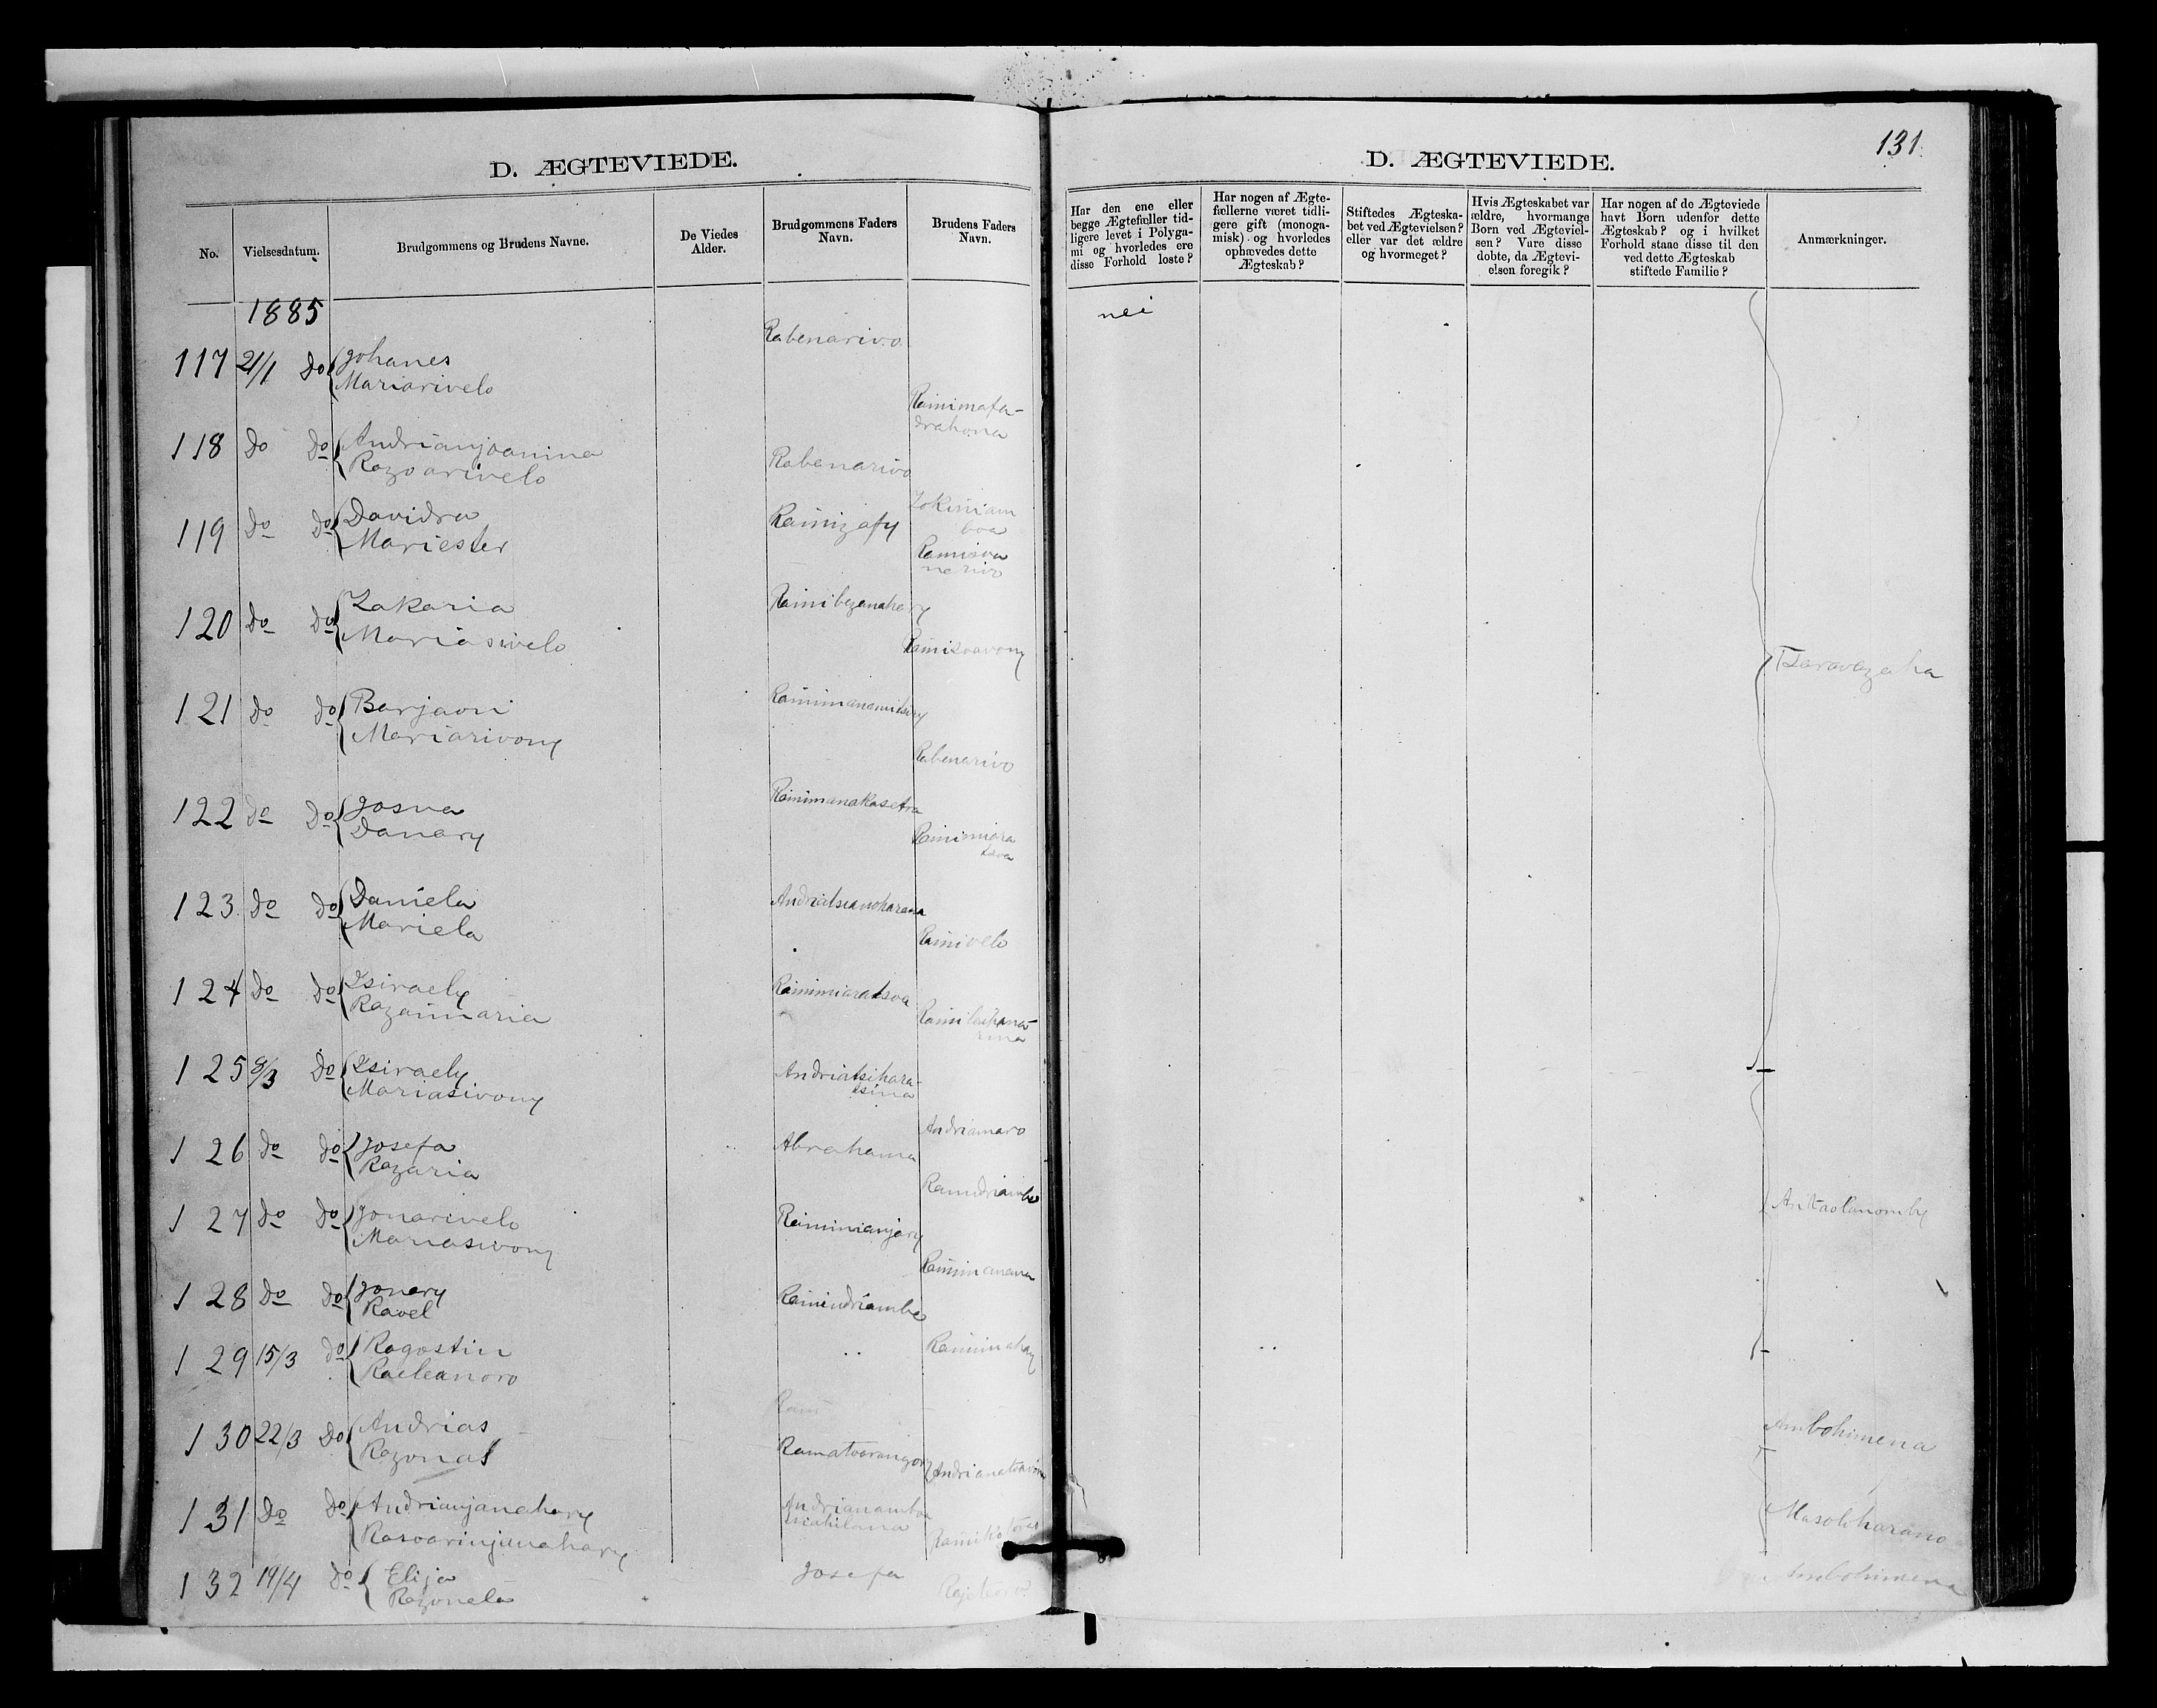 D. ÆGTEVIEDE.
No.
Vielsesdatum.
Brudgommens og Brudens Navne.
De Viedes
Alder.
Brudgommens Faders
Navn.
Brudens Faders
Navn.
1885
117 21/1 do Johanes Rabenarivo
Mariarivelo
Rainimafa-
drahona
118 do do Andrianjoanina Rabenarivo
Razoarivelo
119 do do Davidra Rainizafy
Mariester
120 do do Zakaria Rainibezanahary
Mariasivelo Rainizoavony
121 do do Barjaoni
Mariarivony
Rabenarivo
122 do do Josva Rainimanakasetra
Danery
123 do do Daniela
Mariela Rainivelo
124 do do Isiraely Rainimiaratsoa
Razaimaria
125 8/3 do Isiraely Andriatsihara-
tsina
Mariasivony
Andriamaro
126 do do Josefa Abrahama
Razaria
127 do do Jonarivelo Raininianjary
Mariasivony
128 do do Jonary Rainindriambe
Ravel
129 15/3 do Ragostin
Raeleanoro
130 22/3 do Andrias
Razonas
131 do do Andrianjanahary
Rasoarinjanahary
132 19/4 do Elija Josefa
Razonela
D. ÆGTEVIEDE.
131.
Har den ene eller
begge Ægtefæller tid-
ligere levet i Polyga-
mi og hvorledes ere
disse Forhold løste?
Har nogen af Ægte-
fællerne været tidli-
gere gift (monoga-
misk) og hvorledes
ophævedes dette
Ægteskab?
Stiftedes Ægteska-
bet ved Ægtevielsen?
eller var det ældre
og hvormeget?
Hvis Ægteskabet var
ældre, hvormange
Børn ved Ægteviel-
sen? Vare disse
døbte, da Ægtevi-
elsen foregik?
Har nogen af de Ægteviede
havt Børn udenfor dette
Ægteskab? og i hvilket
Forhold staae disse til den
ved dette Ægteskab
stiftede Familie?
Anmærkninger.
nei
Tsaravazaha
Ambohimena
Masoloharano
Ambohimena